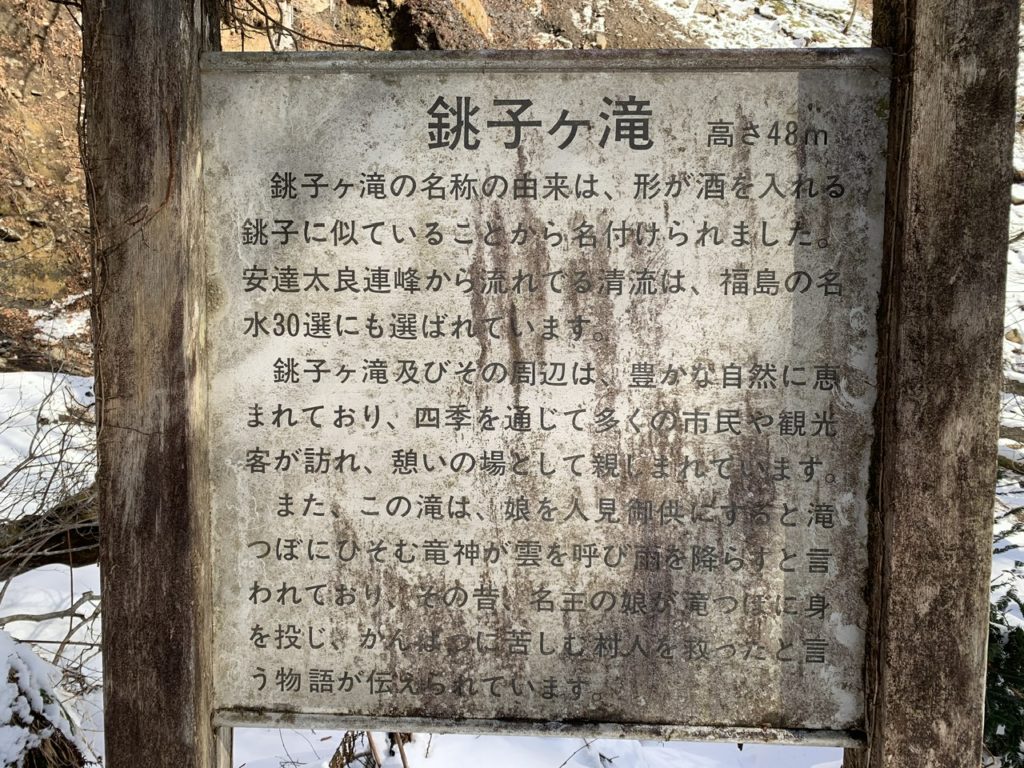 銚子ヶ滝 高さ48m
銚子ヶ滝の名称の由来は、形が酒を入れる
銚子に似ていることから名付けられました。
安達太良連峰から流れてる清流は、福島の名
水30選にも選ばれています。
銚子ヶ滝及びその周辺は、豊かな自然に恵
まれており、四季を通じて多くの市民や観光
客が訪れ、憩いの場として親しまれています。
また、この滝は、娘を人見御供にすると滝
つぼにひそむ竜神が雲を呼び雨を降らすと言
われており、その昔、名主の娘が滝つぼに身
を投じ、かんばつに苦しむ村人を救ったと言
う物語が伝えられています。